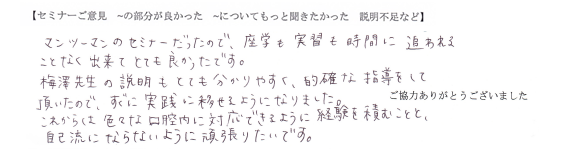 【セミナーご意見　～の部分が良かった　～についてもっと聞きたかった　説明不足など】
マンツーマンのセミナーだったので、座学も実習も時間に追われる
ことなく出来てとても良かったです。
梅澤先生の説明もとても分かりやすく、的確な指導をして
頂いたので、すぐに実践に移せるようになりました。
ご協力ありがとうございました
これからは色々な口腔内に対応できるように経験を積むことと、
自己流にならないように頑張りたいです。